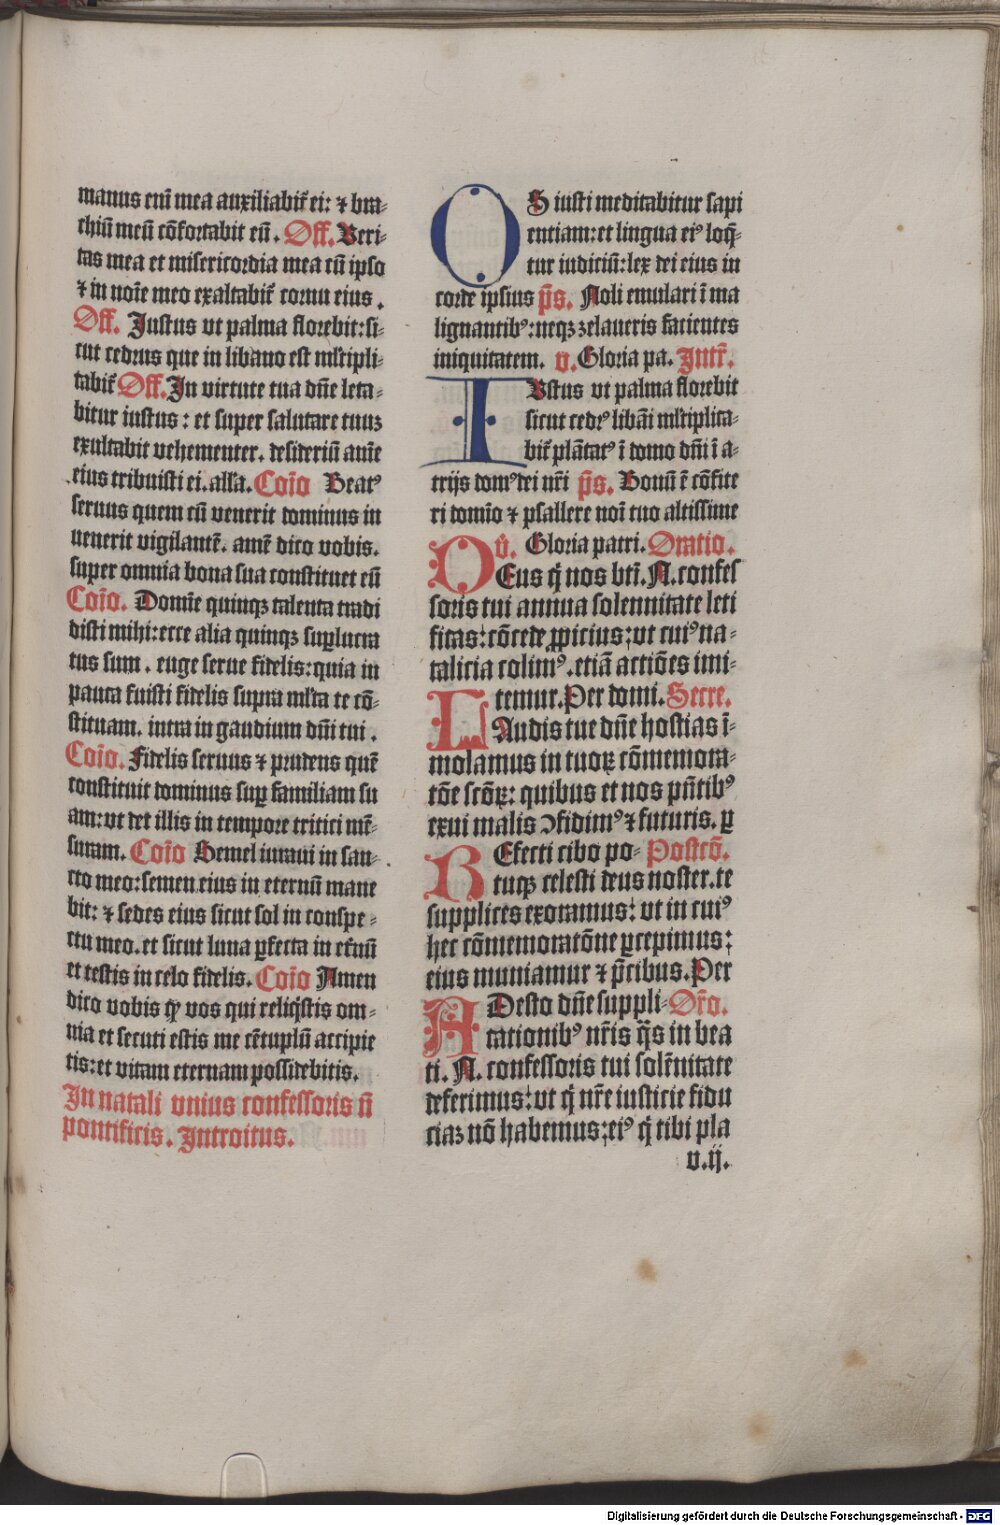 manus eni mea auxiliabit͛ ei: ⁊ bra-
chiū meū cōfortabit eū. Off. Veri-
tas mea et misericordia mea cū ipso
⁊ in noīe meo exaltabit͛ cornu eius.
Off. Justus vt palma florebit: si-
cut cedrus que in libano est ml̄tipli-
tabit͛ Off. In virtute tua dn̄e leta-
bitur iustus: et super salutare tuuꝫ
exultabit vehementer. desideriū anīe
eius tribuisti ei. all'a. Cōīo Beatꝰ
seruus quem cū venerit dominus in
uenerit vigilantē. amē dico vobis.
super omnia bona sua constituet eū
Cōīo. Domīe quinqꝫ talenta tradi
disti mihi: ecce alia quinqꝫ suꝑlucra
tus sum. euge serue fidelis: quia in
pauca fuisti fidelis supra ml̄ta te cō-
stituam. intra in gaudium dn̄i tui.
Cōīo. Fidelis seruus ⁊ prudens quē
constituit dominus suꝑ familiam su
am: vt det illis in tempore tritici mē-
suram. Cōīo Semel iuraui in san-
cto meo: semen eius in eternū mane
bit: ⁊ sedes eius sicut sol in conspe-
ctu meo. et sicut luna ꝑfecta in et͛nū
et testis in celo fidelis. Cōīo Amen
dico vobis qꝫ vos qui reliq̄stis om-
nia et secuti estis me cētuplū accipie
tis: et vitam eternam possidebitis.
In natali vnius confessoris nō
pontificis. Introitus.
OS iusti meditabitur sapi
entiam: et lingua eiꝰ loq̄-
tur iudiciū: lex dei eius in
corde ipsius p̄s. Noli emulari ī ma
lignantibꝰ: neqꝫ zelaueris facientes
iniquitatem. v. Gloria pa. Intr͛.
IVstus vt palma florebit
sicut cedrꝰ libāni ml̄tiplica-
bit͛ plātatꝰ ī domo dn̄i ī a-
trijs domꝰ dei nr̄i p̄s. Bonū ē cōfite
ri domīo ⁊ psallere noī tuo altissime
v̄. Gloria patri. Oratio.
DEus q̄ nos bt̄i. N. confes
soris tui annua solennitate leti
ficas: cōcede ꝓpicius: vt cuiꝰ na-
talicia colimꝰ. etiā actiōes imi-
temur. Per domi. Secre.
LAudis tue dn̄e hostias ī-
molamus in tuoꝝ cōmemora-
tōe scōꝝ: quibus et nos pn̄tibꝰ
exui malis ↄfidimꝰ ⁊ futuris. ꝑ
REfecti cibo po- Postcō.
tuqꝫ celesti deus noster. te
supplices exoramus: vt in cuiꝰ
hec cōmemoratōne ꝑcepimus:
eius muniamur ⁊ p̄cibus. Per
ADesto dn̄e suppli- Or̄o.
cationibꝰ nr̄is q̄s in bea
ti. N. confessoris tui solēnitate
deferimus: vt q̄ nr̄e iusticie fidu
ciaꝫ nō habemus: eiꝰ q̄ tibi pla
v. ij.
Digitalisierung gefördert durch die Deutsche Forschungsgemeinschaft - DFG